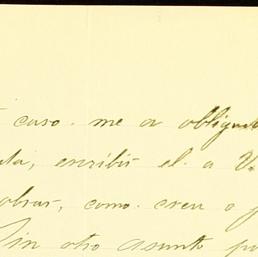 caso. me a obligad
escribir el. a V.
obras, como. creo o
Sin otro asunto po